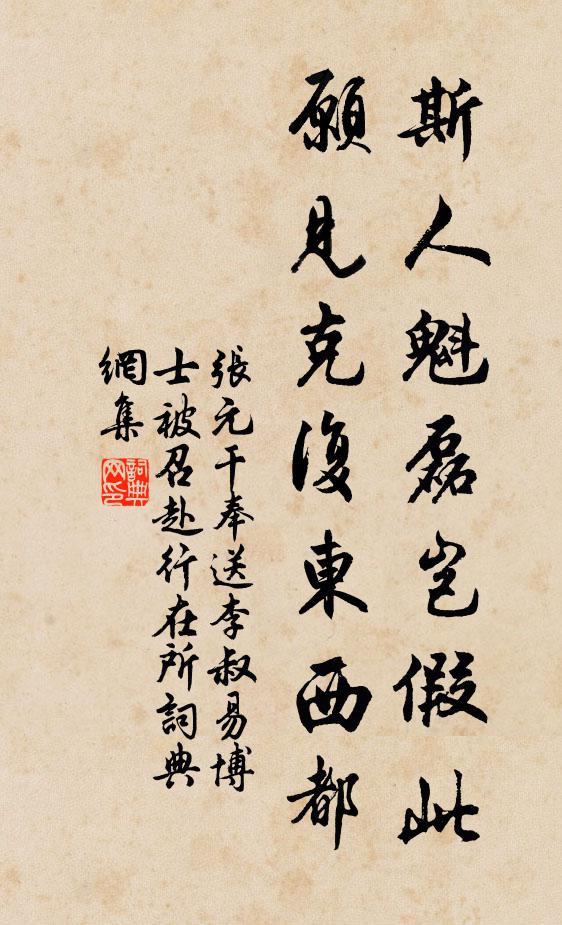 斯人魁磊豈假此
願見克復東西都
張元干奉送李叔易博
士被召赴行在所詞典
網集
詞典
网印